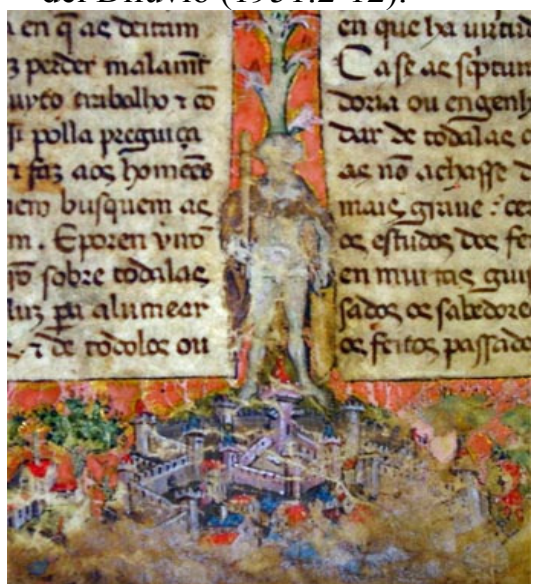 del Diluvio (1951:2-12).
a en q̃ as deitam
⁊ perder malamẽt
uyto trabalho ⁊ cõ
si polla preguiça
⁊ faz aos homẽes
nem busquem as
m . E poren
sobre todalas
luz pa alumear
⁊ de todolos ou
en que ha uirtud
Ca se as scptur
doria ou engenh
dar de todalas c
as nõ achasse d
mais graue : cer
os estudos dos fe
en muitas guis
sados os sabedore
os feitos passado